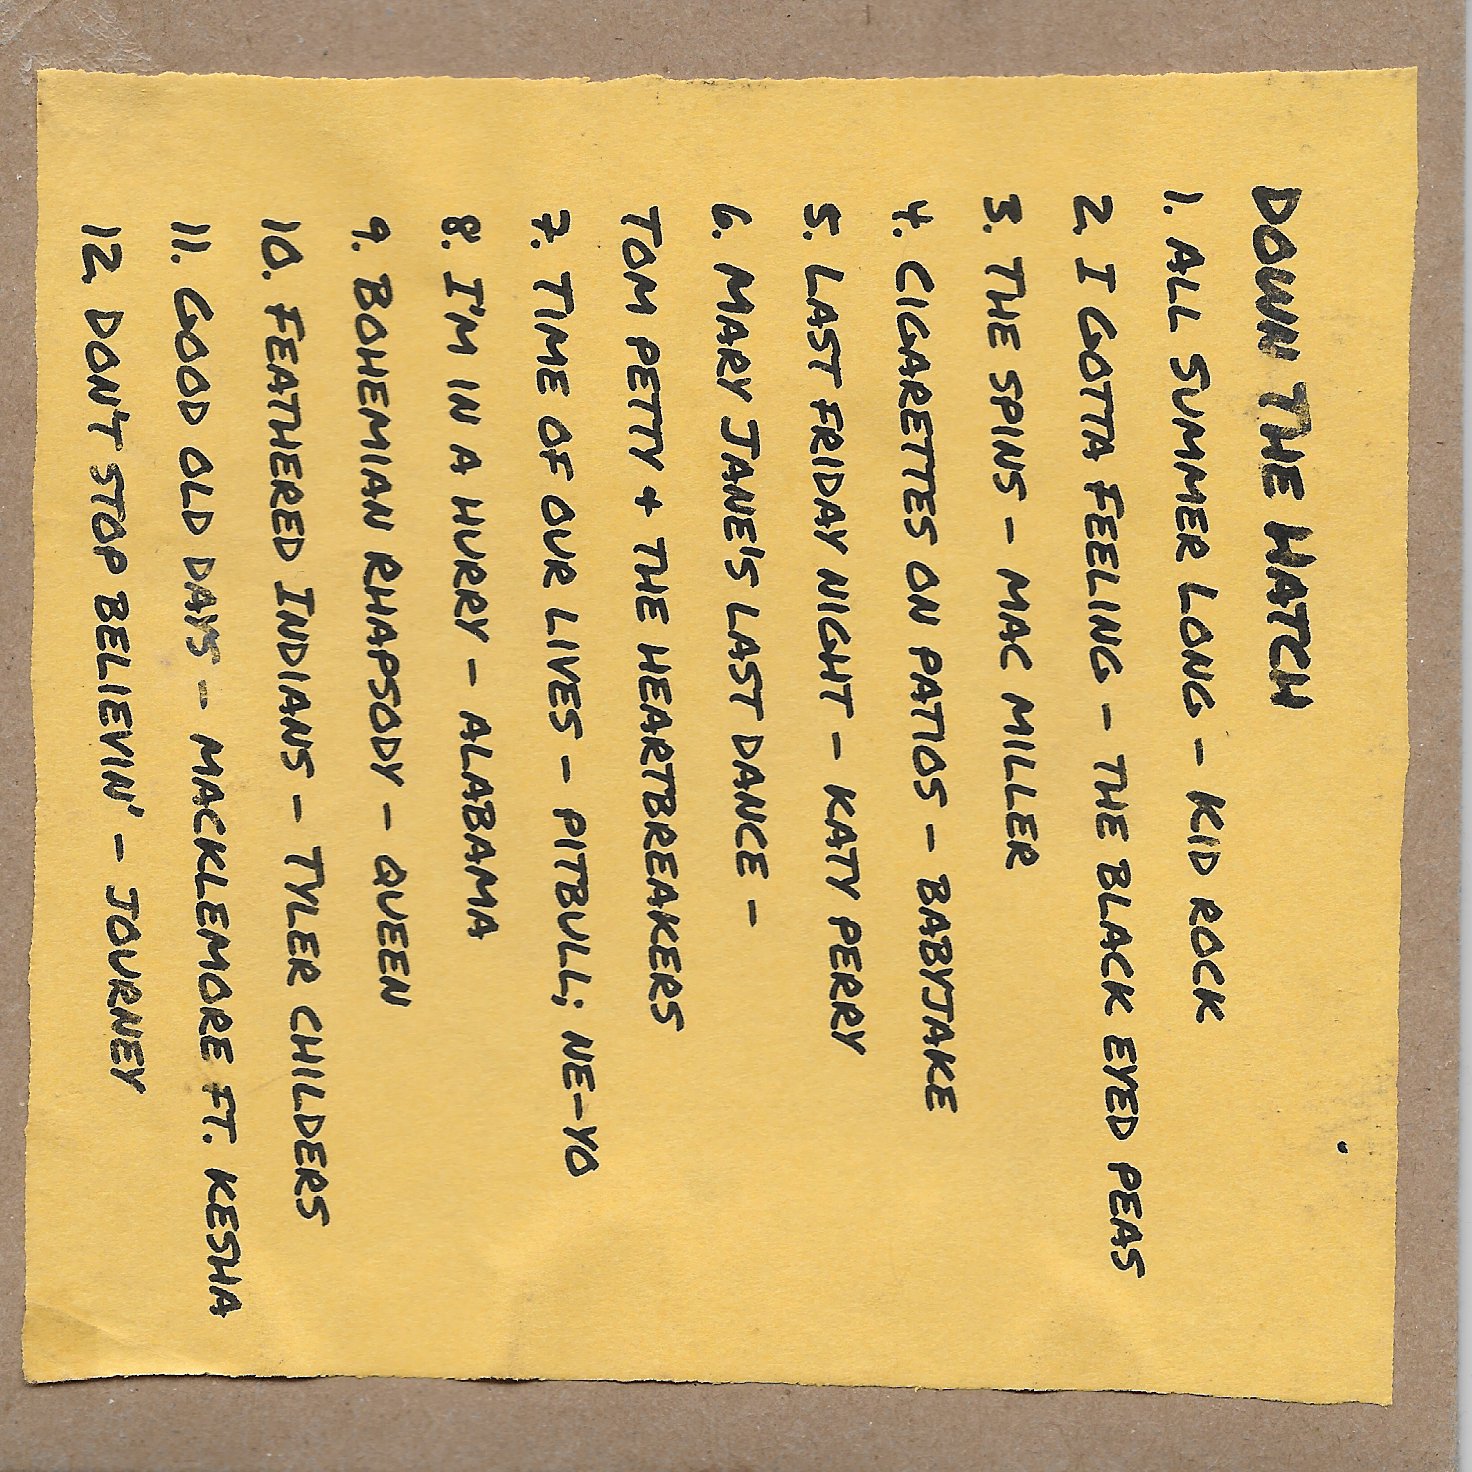 DOWN THE HATCH
1. ALL SUMMER LONG - KID ROCK
2. I GOTTA FEELING - THE BLACK EYED PEAS
3. THE SPINS - MAC MILLER
4. CIGARETTES ON PATIOS - BABYJAKE
5. LAST FRIDAY NIGHT - KATY PERRY
6. MARY JANE'S LAST DANCE -
TOM PETTY + THE HEARTBREAKERS
7. TIME OF OUR LIVES - PITBULL; NE-YO
8. I'M IN A HURRY - ALABAMA
9. BOHEMIAN RHAPSODY - QUEEN
10. FEATHERED INDIANS - TYLER CHILDERS
11. GOOD OLD DAYS - MACKLEMORE FT. KESHA
12. DON'T STOP BELIEVIN' - JOURNEY